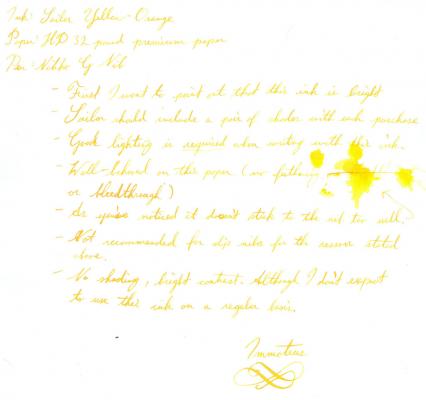 Ink: Sailor Yellow-Orange
Paper: HP 32 pound premium paper
Pen: Nikko G Nib
- First I want to point out that this ink is bright
- Sailor should include a pair of shades with ink purchase
- Good lighting is required when writing with this ink.
- Well-behaved on this paper (no feathering
or bleedthrough)
- As you've noticed it doesn't stick to the nib too well.
- Not recommended for dip nibs for the reason stated
above.
- No shading, bright contrast. Although I don't expect
to use this ink on a regular basis.